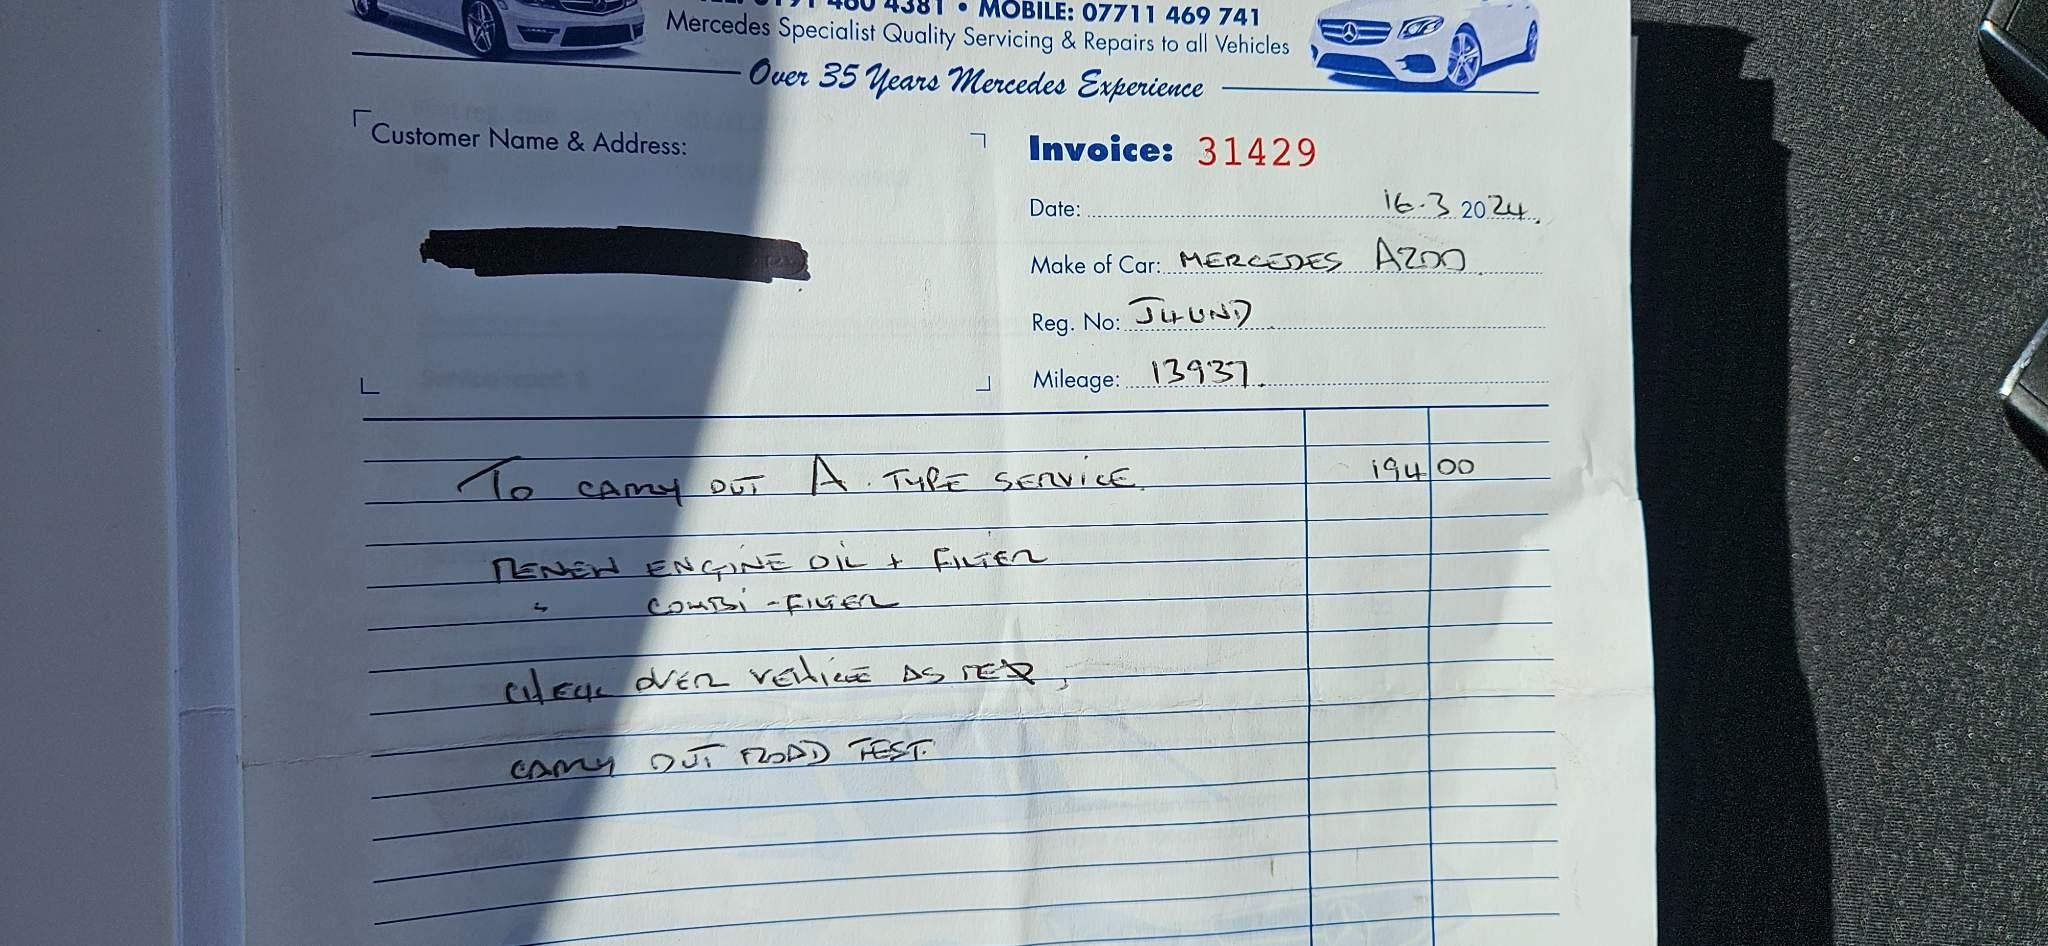 0191 460 4381 • MOBILE: 07711 469 741
Mercedes Specialist Quality Servicing & Repairs to all Vehicles
Over 35 Years Mercedes Experience
Customer Name & Address:
Invoice: 31429
Date: 16.3 2024.
Make of Car: MERCEDES A200
Reg. No: J44UND
Mileage: 13937.
TO CARRY OUT A. TYPE SERVICE. 194 00
RENEW ENGINE OIL + FILTER
" COMBI-FILTER
CHECK OVER VEHICLE AS REQ,
CARRY OUT ROAD TEST.